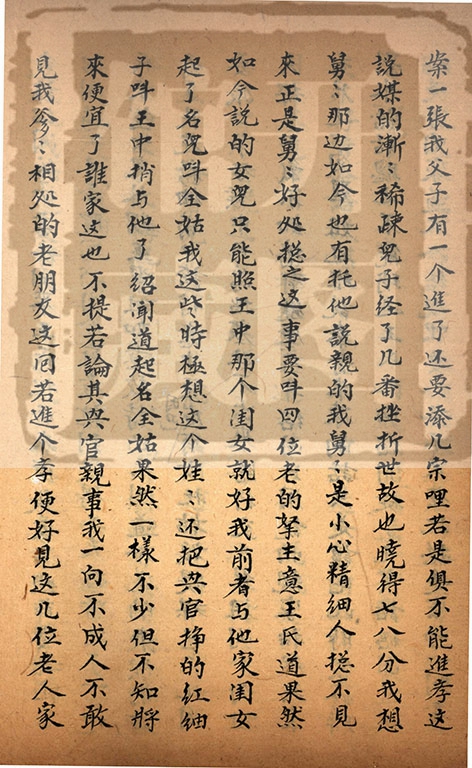 案一張我父子有一个進了还要添几宗哩若是俱不能進孝这
說媒的漸〻稀疎兒子经了几番挫折世故也曉得七八分我想
舅〻那边如今也有托他説親的我舅〻是小心精细人揔不見
來正是舅〻好处揔之这事要呌四位老的拏主意王氏道果然
如今説的女兒只能照王中那个闺女就好我前者与他家闺女
起了名兒呌全姑我这些時極想这个娃〻还把兴官挣的红紬
子呌王中捎与他了紹聞道起名全姑果然一樣不少但不知將
來便宜了誰家这也不提若論其兴官親事我一向不成人不敢
見我爹〻相処的老朋友这回若進个孝便好見这几位老人家